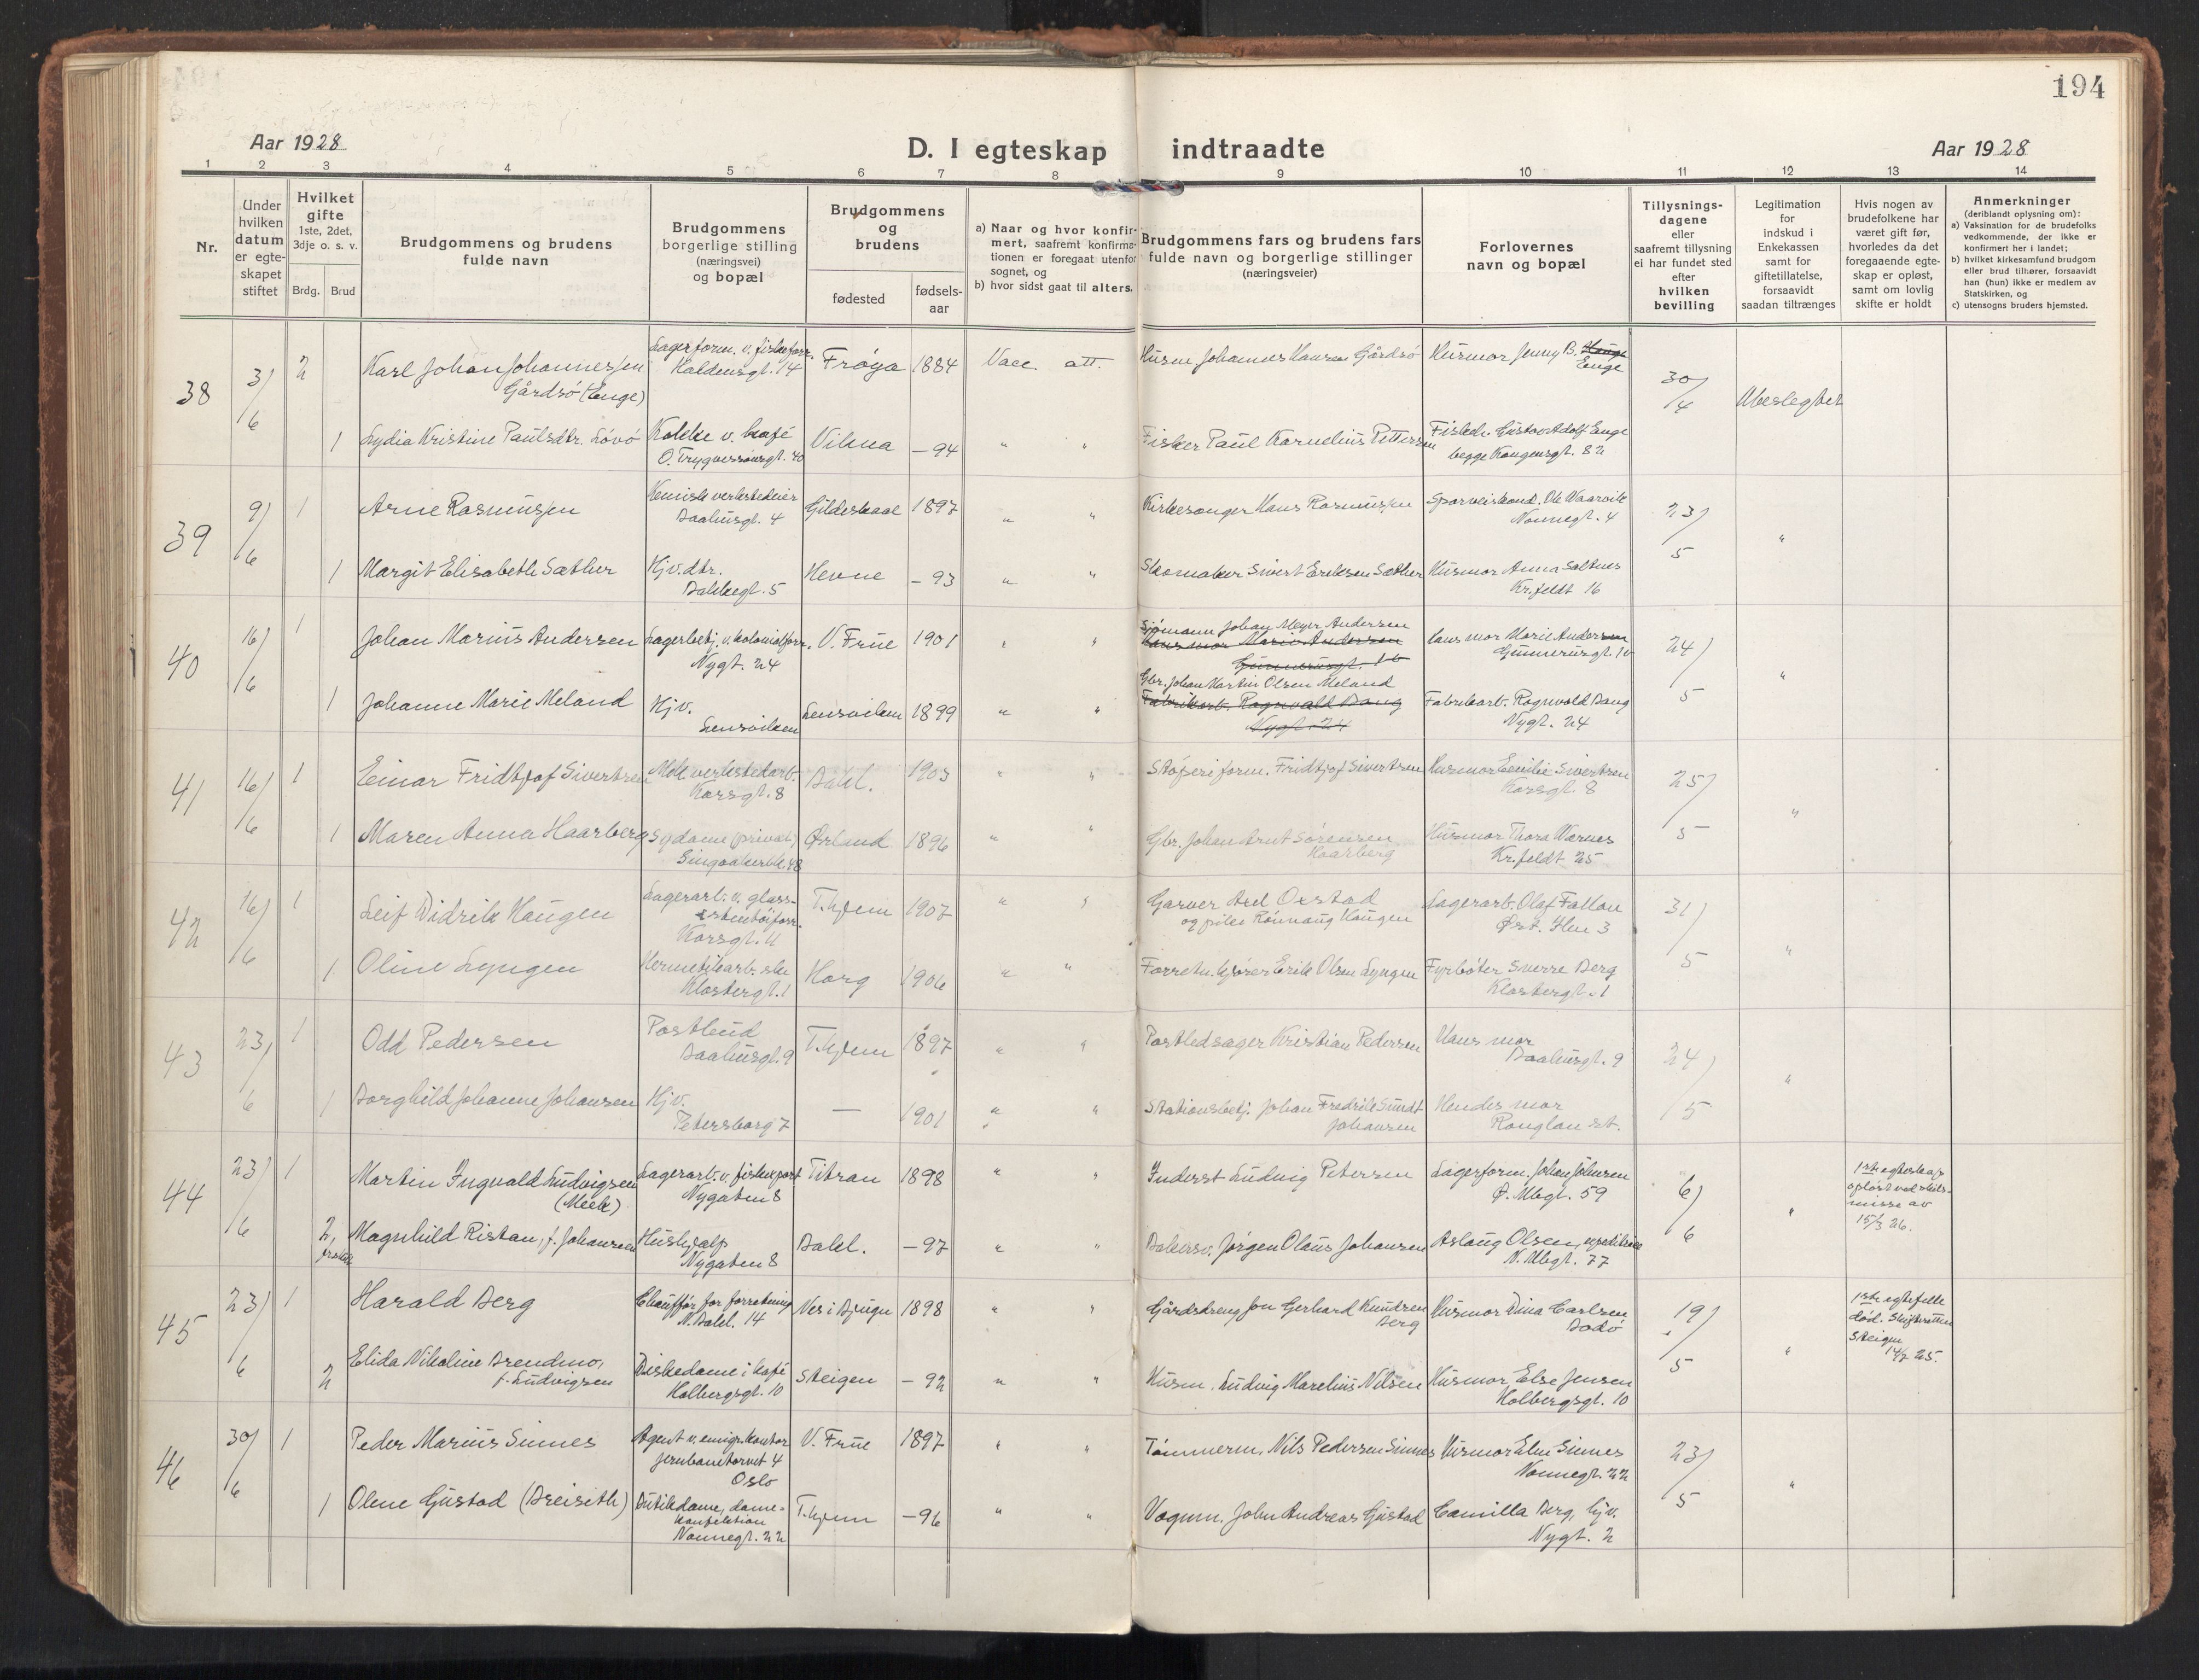 194
Aar 1928
D. I egteskap indtraadte
Aar 1928
1 2 3 4 5 6 7 8 9 10 11 12 13 14
Nr.
Under
hvilken
datum
er egte-
skapet
stiftet
Hvilket
gifte
1ste, 2det,
3dje o. s. v.
Brdg. Brud
Brudgommens og brudens
fulde navn
Brudgommens
borgerlige stilling
(næringsvei)
og bopæl
Brudgommens
og
brudens
fødested
fødsels-
aar
a) Naar og hvor konfir-
mert, saafremt konfirma-
tionen er foregaat utenfor
sognet, og
b) hvor sidst gaat til alters.
Brudgommens fars og brudens fars
fulde navn og borgerlige stillinger
(næringsveier)
Forlovernes
navn og bopæl
Tillysnings-
dagene
eller
saafremt tillysning
ei har fundet sted
efter
hvilken
bevilling
Legitimation
for
indskud i
Enkekassen
samt for
giftetillatelse,
forsaavidt
saadan tiltrænges
Hvis nogen av
brudefolkene har
været gift før,
hvorledes da det
foregaaende egte-
skap er opløst,
samt om lovlig
skifte er holdt
Anmerkninger
(deriblandt oplysning om):
a) Vaksination for de brudefolks
vedkommende, der ikke er
konfirmert her i landet;
b) hvilket kirkesamfund brudgom
eller brud tilhører, forsaavidt
han (hun) ikke er medlem av
Statskirken, og
c) utensogns bruders hjemsted.
38
3/6
2
Karl Johan Johannessen
Gårdsö (Enge)
Lagerform. v. fiskeforr.
Kaldensgt. 14
Frøya
1884
Vacc. att.
Husm Johannes Hansen Gårdsö
Husmor Jenny B. Enge
30/4
Ubeslegtet
1
Lydia Kristine Paulsdtr. Lövö
Kokke v. kafé
O. Trygvessønsgt. 40
Vikna
- 94
" "
Fisker Paul Kornelius Pettersen
Fiskeh. Gustav Adolf Enge
begge Kongensgt. 82
39
9/6
1
Arne Rasmussen
Kemisk verkstedeier
Baahusgt. 4
Gildeskaal
1897
" "
Kirkesanger Hans Rasmussen
Sporveiskond. Ole Waarvik
Nonnegt. 4
23/5
"
1
Margit Elisabeth Sæther
Hj.v. dtr.
Bakkegt. 5
Hevne
- 93
" "
Skomaker Sivert Eriksen Sæther
Husmor Anna Saltnes
Kr.feldt 16
40
16/6
1
Johan Marius Andersen
Lagerbetj. v. kolonialforr.
Nygt. 24
V. Frue
1901
" "
Sjömann Johan Meyer Andersen
Hans mor Marie Andersen
Gunnerusgt. 10
Hans mor Marie Andersen
Gunnerusgt. 10
24/5
"
1
Johanne Marie Meland
Hj.v.
Lensviken
Lensviken
1899
" "
Gbr. Johan Martin Olsen Meland
Fabrikarb. Ragnvald Bang
Nygt. 24
Fabrikarb. Ragnvald Bang
Nygt. 24
41
16/6
1
Einar Fridtjof Sivertsen
Mek verkstedarb.
Korsgt. 8
Bakl.
1903
" "
Støperiform. Fridtjof Sivertsen
Husmor Emilie Sivertsen
Korsgt. 8
25/5
"
1
Maren Anna Haarberg
Sydame (privat)
Singsakerbk 48
Ørland
1896
" "
Gbr. Johan Arnt Sørensen
Haarberg
Husmor Thora Værnes
Kr.feldt 25
42
16/6
1
Leif Didrik Haugen
Lagerarb. v. glass-
& stentöiforr.
Korsgt. 11
T.hjem
1907
" "
Garver Axel Oxstad
og pike Rönnaug Haugen
Lagerarb. Olaf Fallan
Øst. Ilen 3
31/5
"
1
Oline Lyngen
Hermetikarb.ske
Klostergt. 1
Horg
1906
" "
Forretn.kjører Erik Olsen Lyngen
Fyrböter Sverre Berg
Klostergt. 1
43
23/6
1
Odd Pedersen
Postbud
Baahusgt. 9
T.hjem
1897
" "
Postledsager Kristian Pedersen
Hans mor
Baahusgt. 9
24/5
"
1
Borghild Johanne Johansen
Hj.v.
Petersborg 7
—
1901
" "
Stationsbetj. Johan Fredrik Sundt
Johansen
Hendes mor
Ronglan st.
44
23/6
1
Martin Ingvald Ludvigsen
(Meek)
Lagerarb. v. fiskexport
Nygaten 8
Titran
1898
" "
Inderst Ludvig Petersen
Lagerform. Johan Johnsen
Ø. Mbgt. 59
6/6
"
1ste egteskap
opløst ved skils-
misse av
15/3 26.
2,
fraskilt
Magnhild Ristan, f. Johansen
Hushjælp
Nygaten 8
Bakl.
- 97
" "
Bakersv. Jørgen Olaus Johansen
Aslaug Olsen, expeditrice
N. Mbgt. 77
45
23/6
1
Harald Berg
Chauffør for forretning
N. Bakl. 14
Nes i Bjugn
1898
" "
Gårdsdreng Jon Gerhard Knudsen
Berg
Husmor Dina Carlsen
Bodö
19/5
"
1ste egtefelle
død. Skifteretten
Steigen
14/2 25.
2
Elida Nikoline Brendmo,
f. Ludvigsen
Diskedame i kafé
Holbergsgt. 10
Steigen
- 92
" "
Husm. Ludvig Marelius Nilsen
Husmor Else Jensen
Holbergsgt. 10
46
30/6
1
Peder Marius Sinnes
Agent v. emigr.kontor
Jernbanetorvet 4
Oslo
V. Frue
1897
" "
Tömmerm. Nils Pedersen Sinnes
Husmor Elen Sinnes
Nonnegt. 22
23/5
"
1
Olene Gustad (Breiseth)
Butikdame, dame-
konfektion
Nonnegt. 22
T.hjem
- 96
" "
Vognm. John Andreas Gustad
Camilla Berg, hj.v.
Nygt. 2